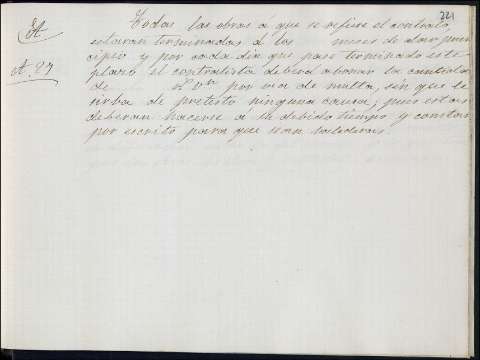 221
A
A. 27
Todas las obras á que se refiere el contrato
estaran terminadas á los meses de dar prin
cipio y por cada dia que pase terminado este
plazo el contratista deberá abonar la cantidad
de r.s v.n por via de multa, sin que le
sirba de pretesto ninguna causa, pues estas
deberan hacerse a su debido tiempo y constar
por escrito para que sean valederas.